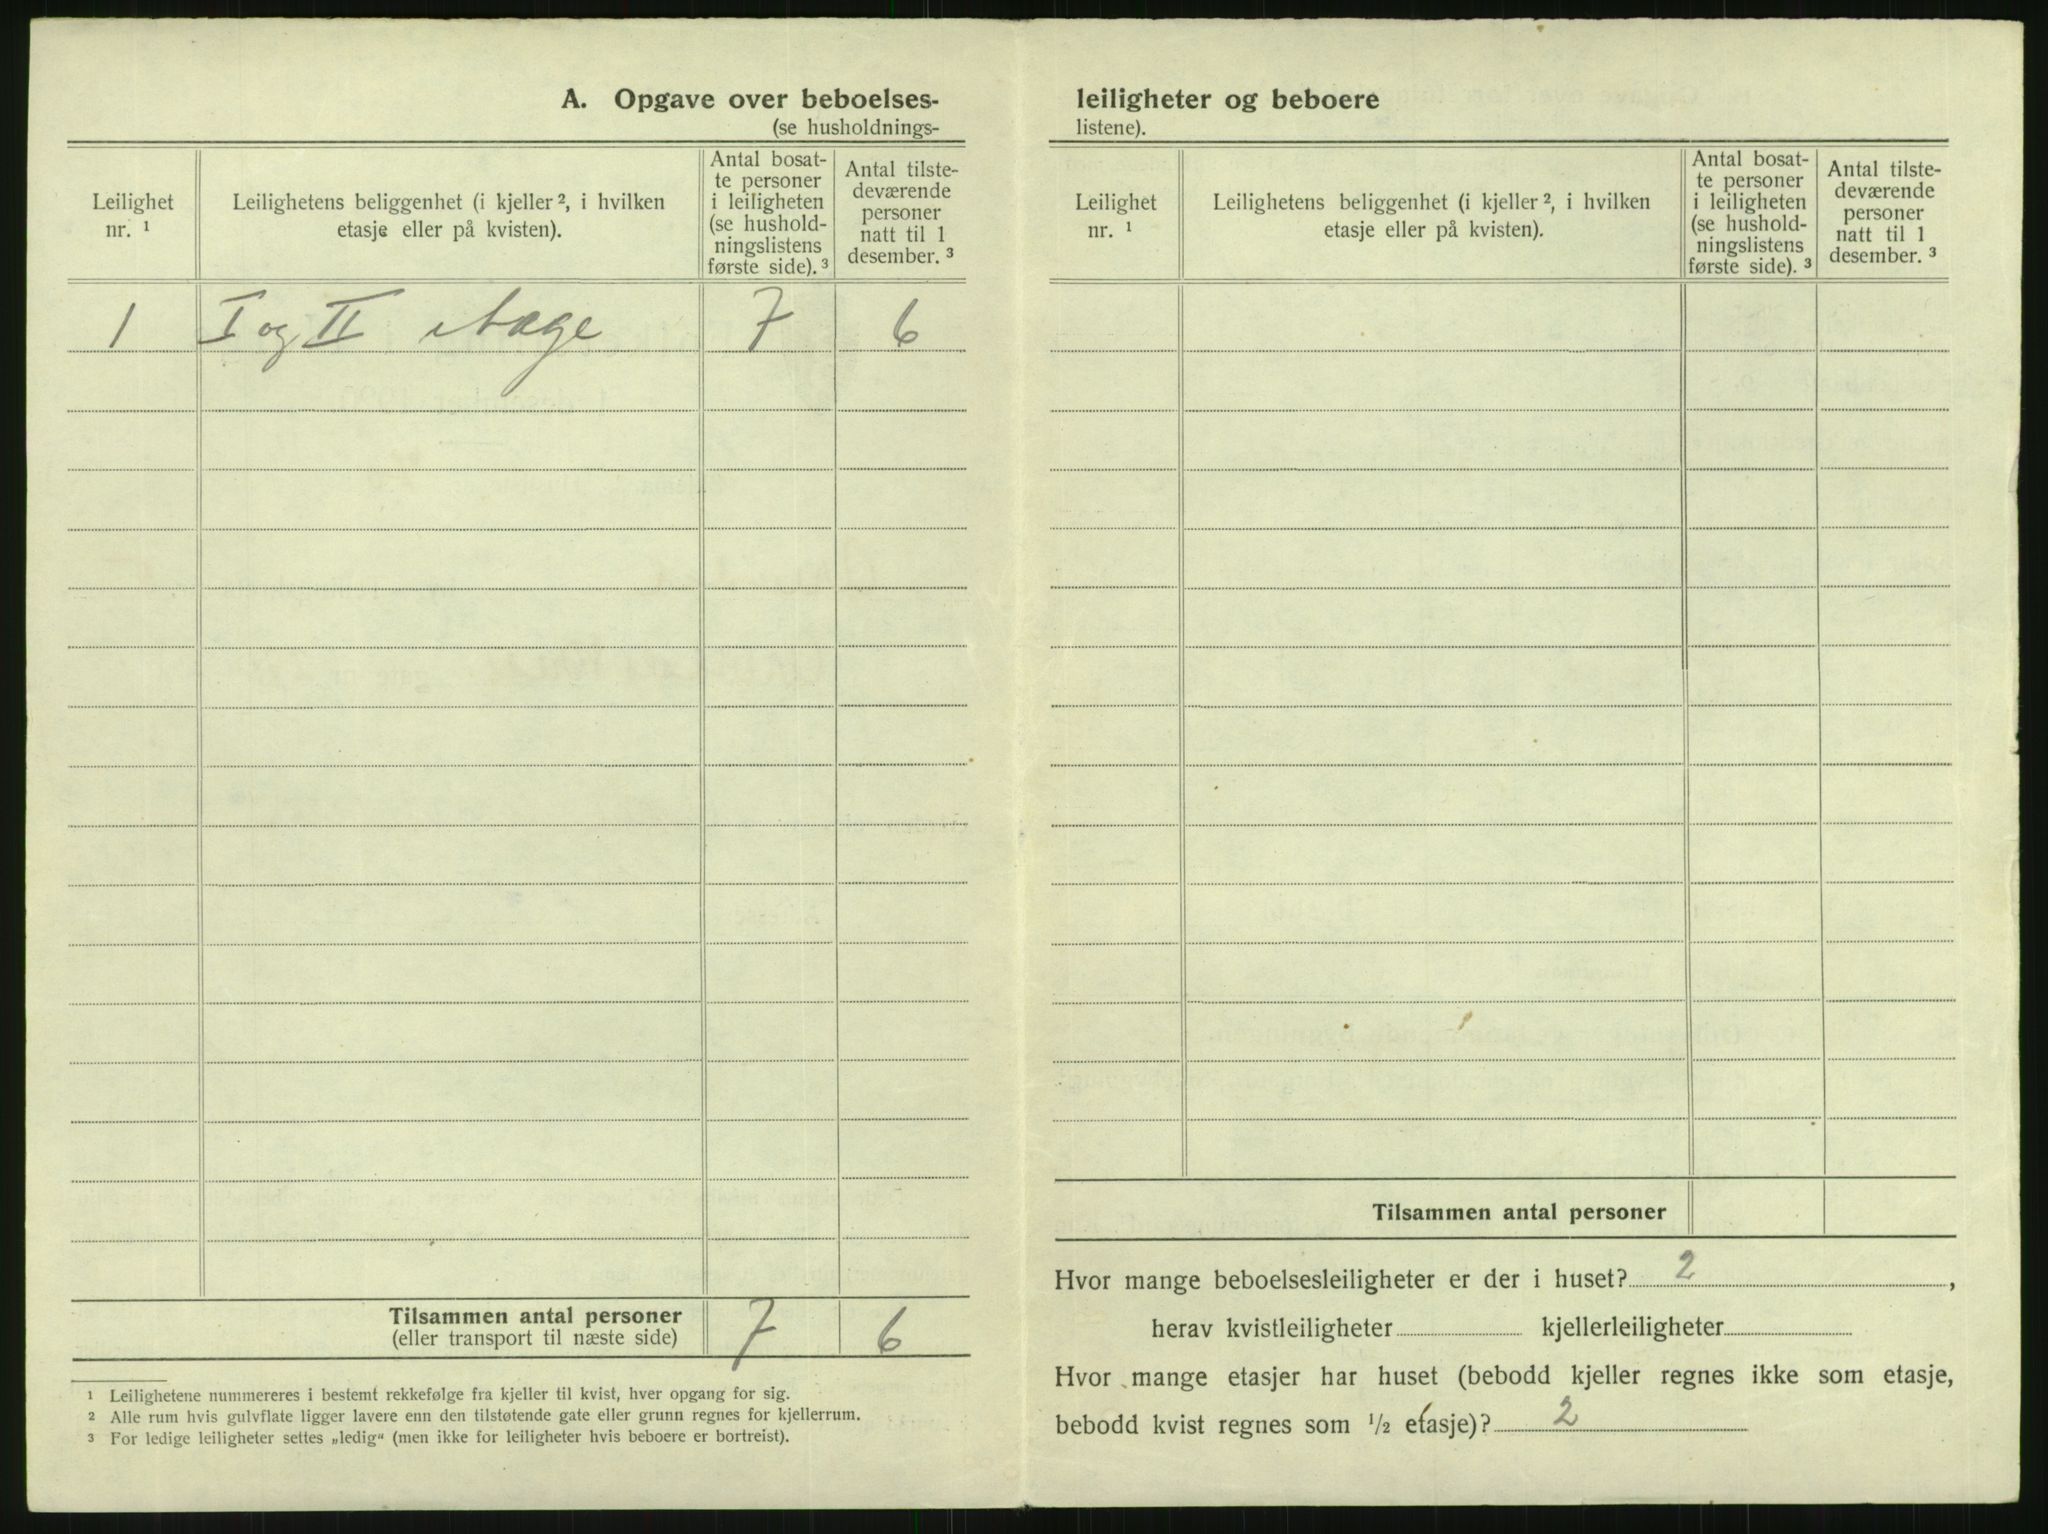 A. Opgave over beboelses-
(se husholdnings-
Leilighet
nr. ¹
Leilighetens beliggenhet (i kjeller ², i hvilken
etasje eller på kvisten).
Antal bosat-
te personer
i leiligheten
(se hushold-
ningslistens
første side). ³
Antal tilste-
deværende
personer
natt til 1
desember. ³
1 I og II etage 7 6
Tilsammen antal personer
(eller transport til næste side)
7 6
¹ Leilighetene nummereres i bestemt rekkefølge fra kjeller til kvist, hver opgang for sig.
² Alle rum hvis gulvflate ligger lavere enn den tilstøtende gate eller grunn regnes for kjellerrum.
³ For ledige leiligheter settes „ledig“ (men ikke for leiligheter hvis beboere er bortreist).
leiligheter og beboere
listene).
Leilighet
nr. ¹
Leilighetens beliggenhet (i kjeller ², i hvilken
etasje eller på kvisten).
Antal bosat-
te personer
i leiligheten
(se hushold-
ningslistens
første side). ³
Antal tilste-
deværende
personer
natt til 1
desember. ³
Tilsammen antal personer
Hvor mange beboelsesleiligheter er der i huset? 2 ,
herav kvistleiligheter kjellerleiligheter
Hvor mange etasjer har huset (bebodd kjeller regnes ikke som etasje,
bebodd kvist regnes som ½ etasje)? 2